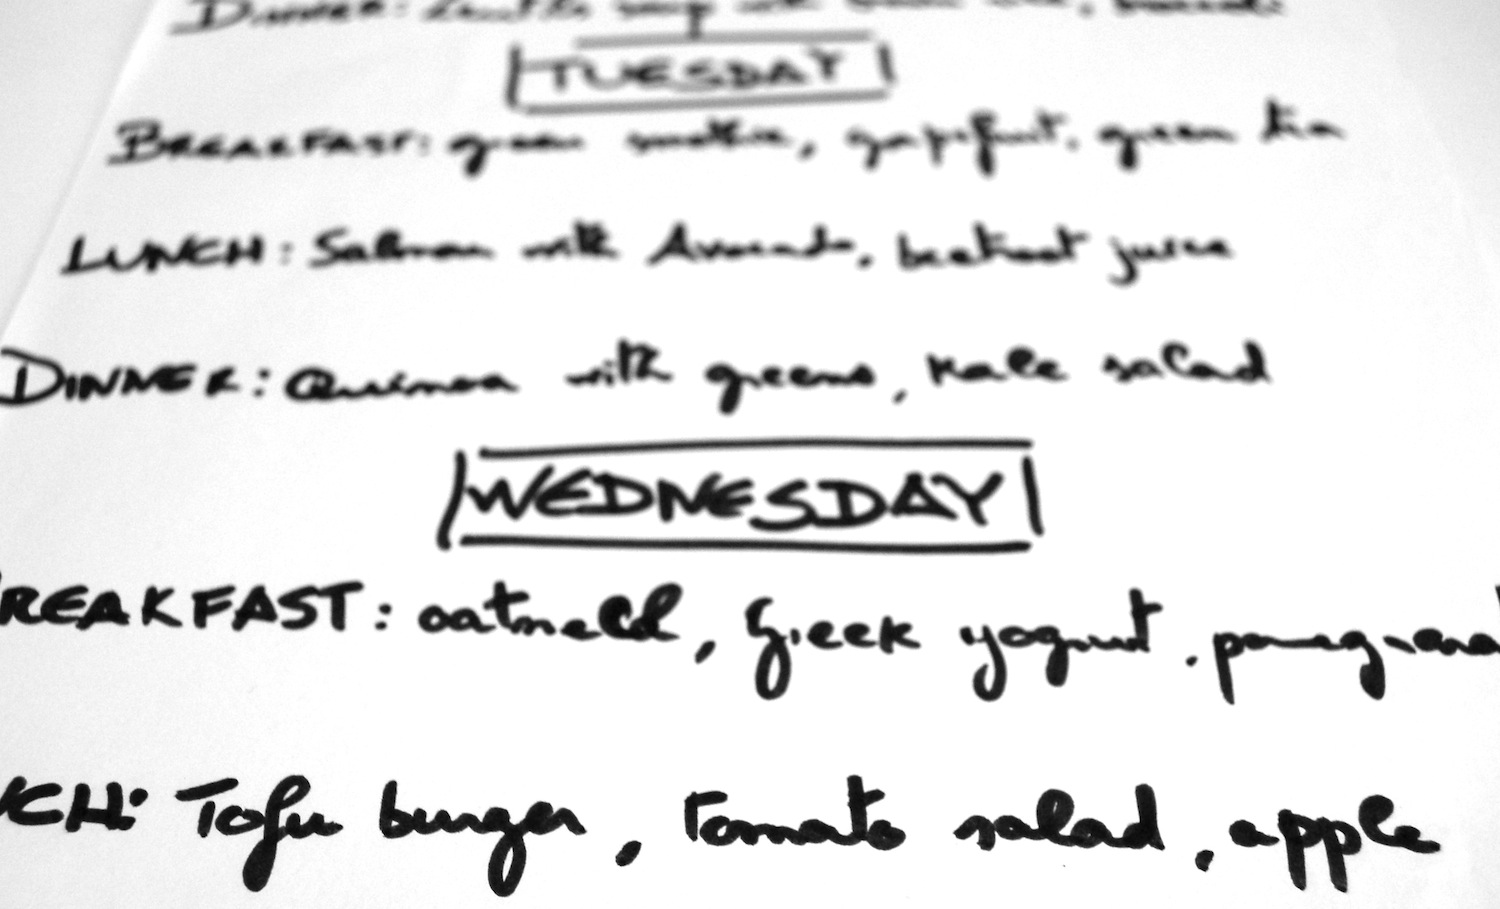 DINNER: Lentil soup with
TUESDAY
BREAKFAST: green smoothie, grapefruit, green tea
LUNCH: Salmon with Avocado, beetroot juice
DINNER: Quinoa with greens, Kale salad
WEDNESDAY
REAKFAST: oatmeal, Greek yogurt, pomegrana
CH: Tofu burger, tomato salad, apple